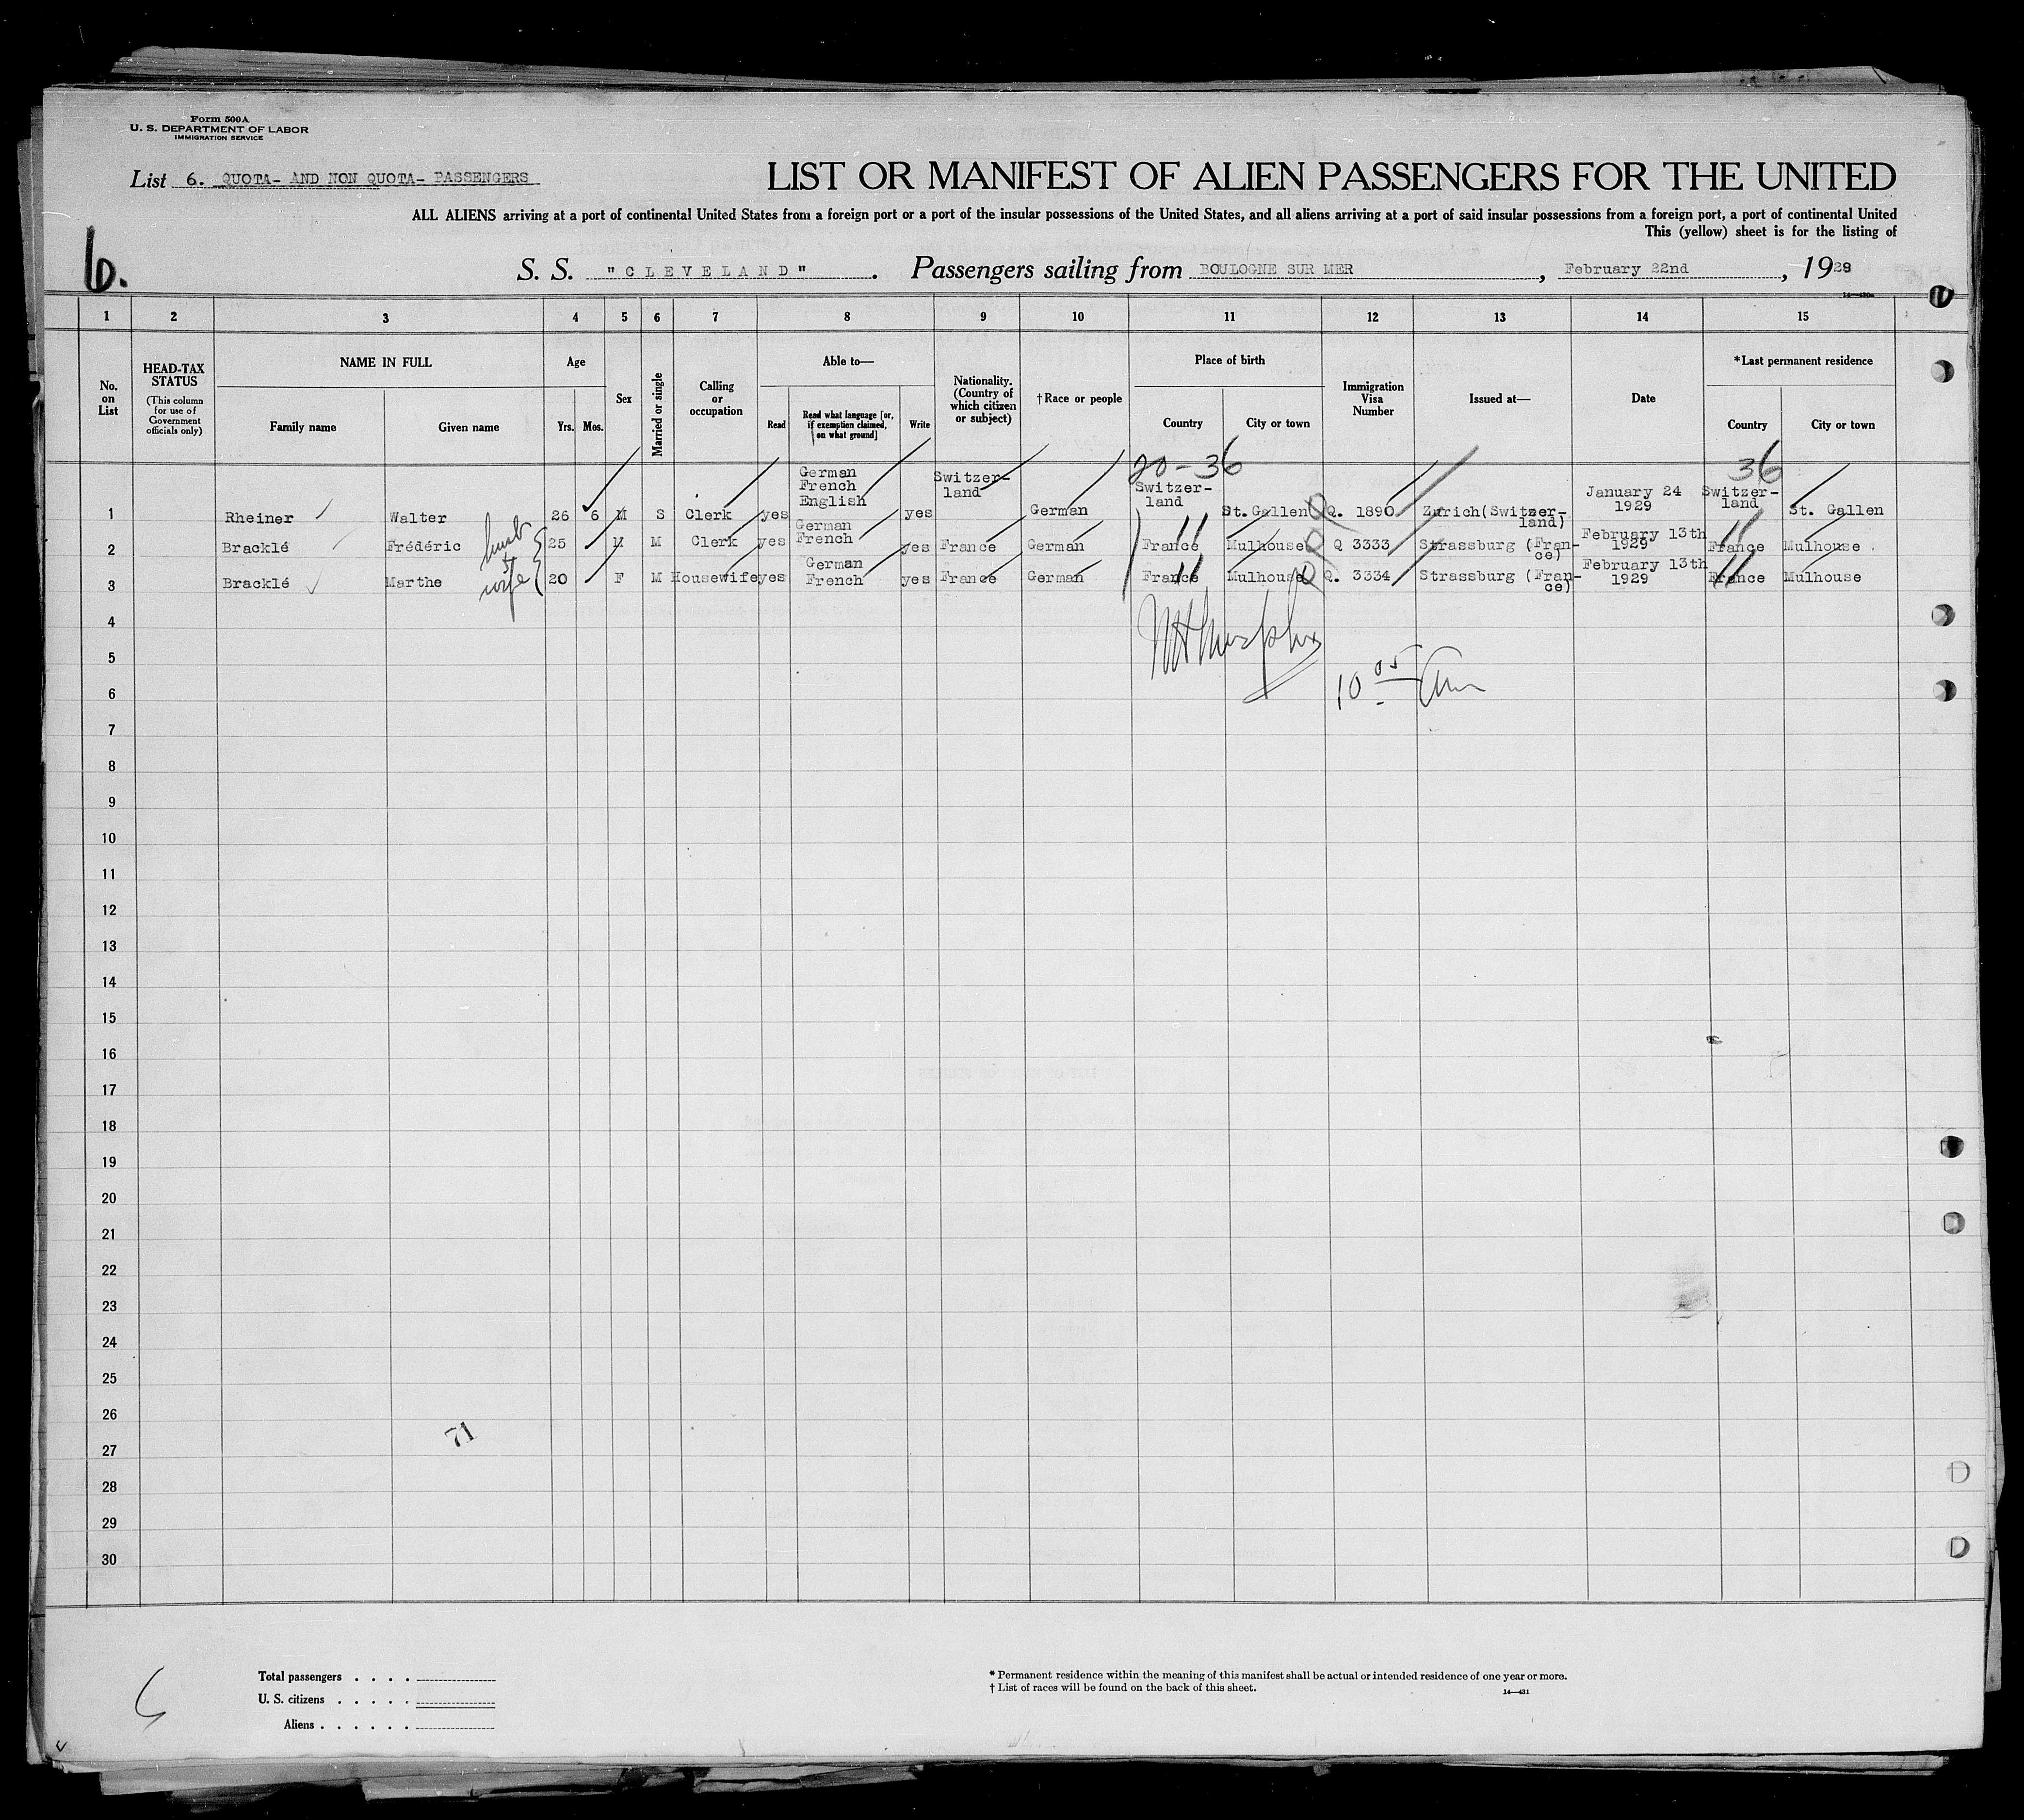 Form 500A
U. S. DEPARTMENT OF LABOR
IMMIGRATION SERVICE
List 6. QUOTA- AND NON QUOTA- PASSENGERS
LIST OR MANIFEST OF ALIEN PASSENGERS FOR THE UNITED
ALL ALIENS arriving at a port of continental United States from a foreign port or a port of the insular possessions of the United States, and all aliens arriving at a port of said insular possessions from a foreign port, a port of continental United
This (yellow) sheet is for the listing of
6.
S. S. "CLEVELAND". Passengers sailing from BOULOGNE SUR MER, February 22nd, 1929
1 2 3 4 5 6 7 8 9 10 11 12 13 14 15
No. on List
HEAD-TAX STATUS
(This column for use of Government officials only)
NAME IN FULL
Family name Given name
Age
Yrs. Mos.
Sex
Married or single
Calling or occupation
Able to—
Read
Read what language [or, if exemption claimed, on what ground]
Write
Nationality. (Country of which citizen or subject)
† Race or people
Place of birth
Country City or town
Immigration Visa Number
Issued at—
Date
*Last permanent residence
Country City or town
20-36 36
1 Rheiner Walter 26 6 M S Clerk yes German French English yes Switzer-land German Switzer-land St. Gallen Q. 1890 Zurich(Switzer-land) January 24 1929 Switzer-land St. Gallen
2 Bracklé Frédéric husb 25 M M Clerk yes German French yes France German France 11 Mulhouse Q 3333 Strassburg (Fran-ce) February 13th 1929 France 11 Mulhouse
3 Bracklé Marthe wife 20 F M Housewife yes German French yes France German France 11 Mulhouse Q. 3334 Strassburg (Fran-ce) February 13th 1929 France 11 Mulhouse
4
5
6 10 05 am
7
8
9
10
11
12
13
14
15
16
17
18
19
20
21
22
23
24
25
26
71
27
28
29
30
Total passengers . . . .
U. S. citizens . . . . .
Aliens . . . . . .
* Permanent residence within the meaning of this manifest shall be actual or intended residence of one year or more.
† List of races will be found on the back of this sheet.
14—431